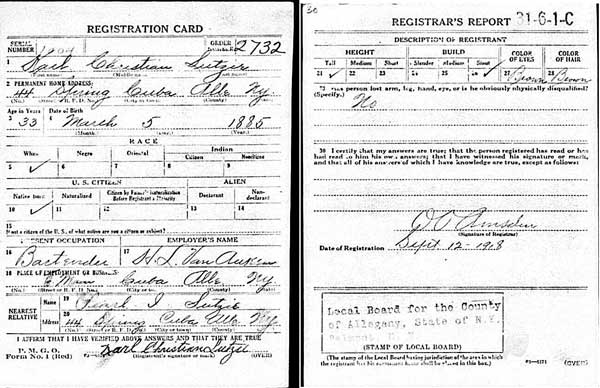 REGISTRATION CARD
SERIAL NUMBER 1909 ORDER NUMBER 2732
1 Karl Christian Sutzie
(First name) (Middle name) (Last name)
2 PERMANENT HOME ADDRESS:
44 Spring Cuba Alle Ny
(No.) (Street or R. F. D. No.) (City or town) (County) (State)
Age in Years Date of Birth
3 33 4 March 5 1885
(Month) (Day) (Year)
RACE
White Negro Oriental Indian
Citizen Noncitizen
5 ✓ 6 7 8 9
U. S. CITIZEN ALIEN
Native born Naturalized Citizen by Father's Naturalization Before Registrant's Majority Declarant Non-declarant
10 ✓ 11 12 13 14
15
If not a citizen of the U. S., of what nation are you a citizen or subject?
PRESENT OCCUPATION EMPLOYER'S NAME
16 Bartender 17 H. L. Van Auken
18 PLACE OF EMPLOYMENT OR BUSINESS:
E Main Cuba Alle Ny
(No.) (Street or R. F. D. No.) (City or town) (County) (State)
NEAREST RELATIVE
Name 19 J. Sutzie
Address 20 44 Spring Cuba Alle Ny
(No.) (Street or R. F. D. No.) (City or town) (County) (State)
I AFFIRM THAT I HAVE VERIFIED ABOVE ANSWERS AND THAT THEY ARE TRUE
P. M. G. O.
Form No. 1 (Red) Karl Christian Sutzie
(Registrant's signature or mark) (OVER)
30
REGISTRAR'S REPORT 31-6-1-C
DESCRIPTION OF REGISTRANT
HEIGHT BUILD COLOR OF EYES COLOR OF HAIR
Tall Medium Short Slender Medium Stout
21 ✓ 22 23 24 25 26 ✓ 27 Brown 28 Brown
29 Has person lost arm, leg, hand, eye, or is he obviously physically disqualified?
(Specify.) No
30 I certify that my answers are true; that the person registered has read or has
had read to him his own answers; that I have witnessed his signature or mark,
and that all of his answers of which I have knowledge are true, except as follows:
(Signature of Registrar)
Date of Registration Sept 12-1918
Local Board for the County
of Allegany, State of N.Y.
(STAMP OF LOCAL BOARD)
(The stamp of the Local Board having jurisdiction of the area in which
the registrant has his permanent home shall be placed in this box.)
(OVER)